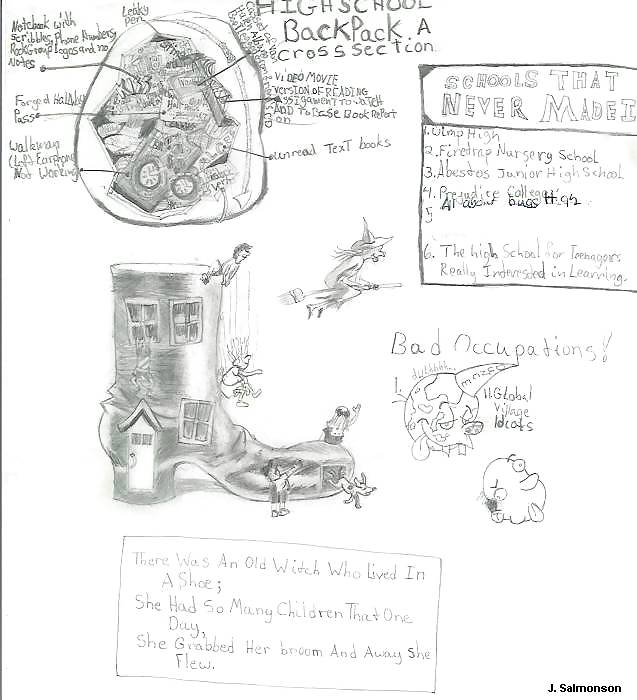 HIGHSCHOOL
BackPack. A
cross section
Leaky
Pen
Notebook with
scribbles, Phone Numbers,
RockGroup Logos and no
Notes
Forged Hall
Pass
Walkman
(Left Earphone
Not Working)
VIDEO MOVIE
VERSION OF READING
ASSIGNMENT TO WATCH
AND TO Base Book Report
on
unread Text books
SCHOOLS THAT
NEVER MADE I
1. Wimp High
2. Firetrap Nursery School
3. Abestos Junior High School
4. Prejudice College
5
All about bugs High
6. The high School for Teenagers
Really Interested in Learning.
Bad Occupations!
duhhhhh...
1.
11. Global
Village
Idiots
There Was An Old Witch Who Lived In
A Shoe;
She Had So Many Children That One
Day,
She Grabbed Her broom And Away She
Flew.
J. Salmonson